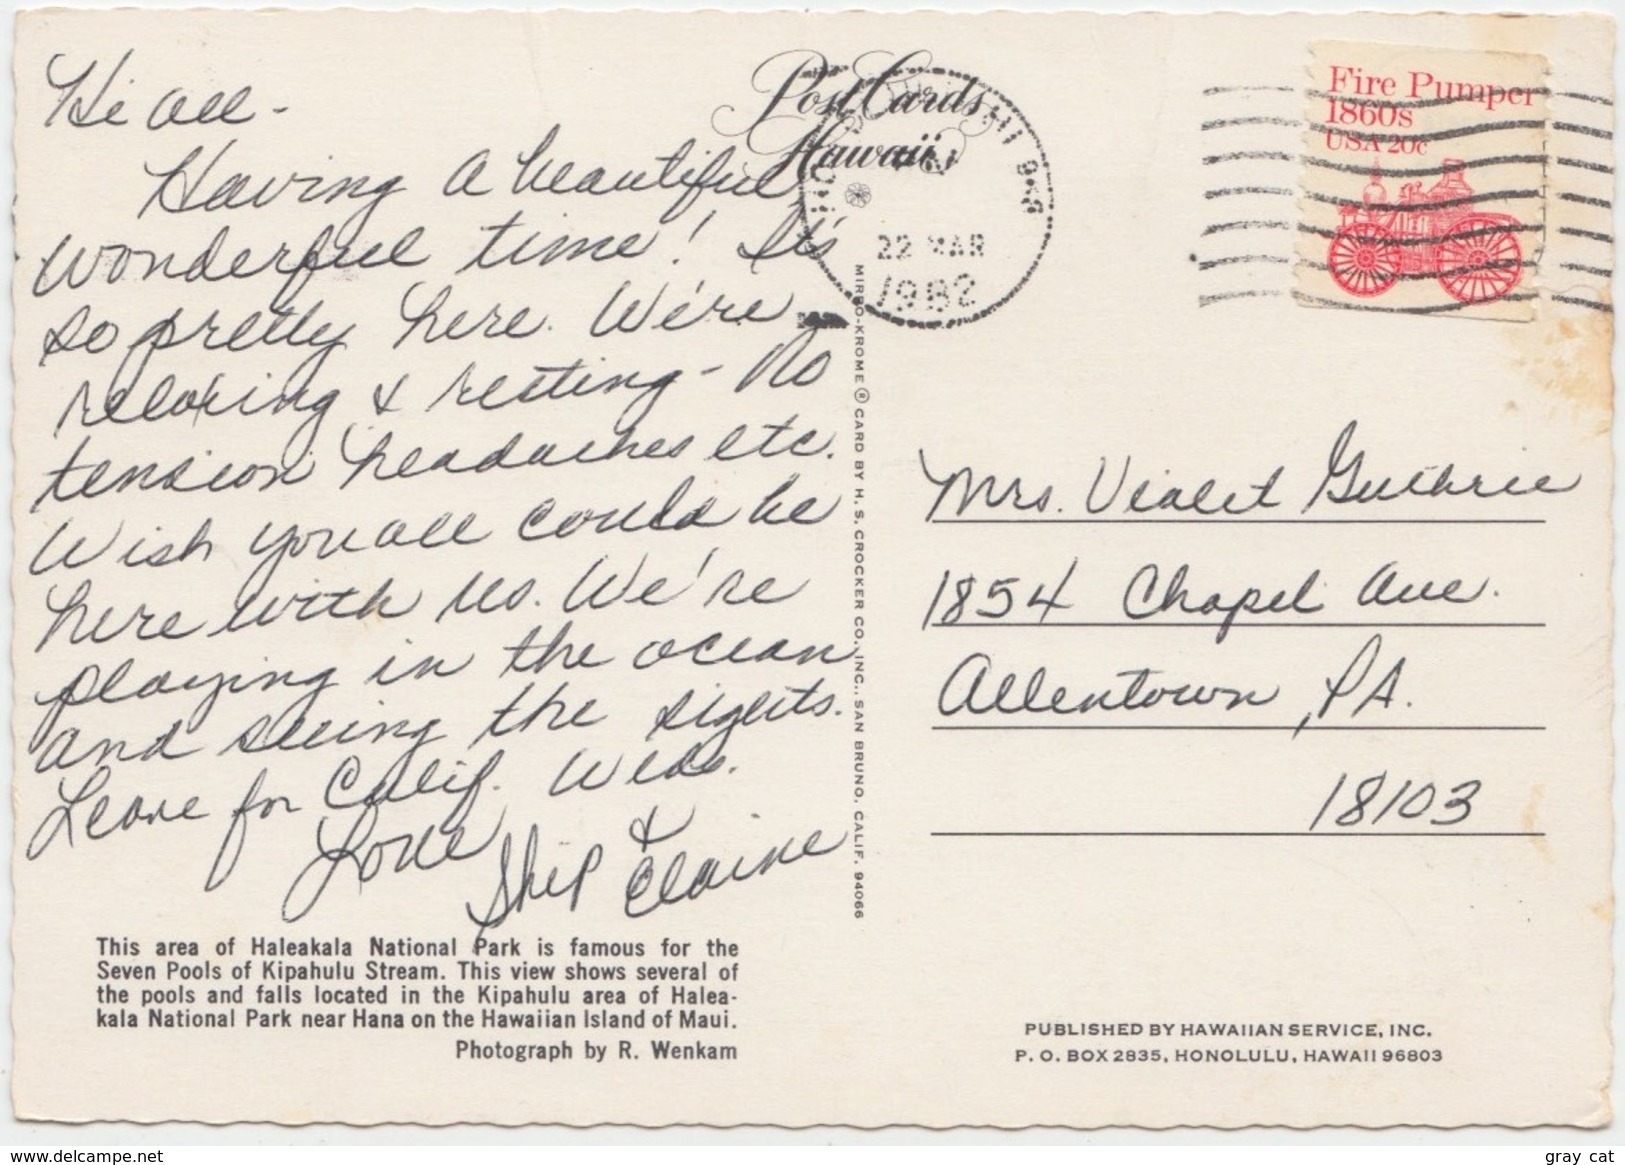 Hi all -
Having a beautiful,
wonderful time! It's
so pretty here. We're
relaxing & resting - No
tension headaches etc.
Wish you all could be
here with us. We're
playing in the ocean
and seeing the sights.
Leave for Calif. Weds.
Love
Skip & Elaine
This area of Haleakala National Park is famous for the
Seven Pools of Kipahulu Stream. This view shows several of
the pools and falls located in the Kipahulu area of Halea-
kala National Park near Hana on the Hawaiian Island of Maui.
Photograph by R. Wenkam
Post Cards
Hawaii
22 MAR
1982
MIRRO-KROME ® CARD BY H. S. CROCKER CO., INC., SAN BRUNO, CALIF. 94066
Fire Pumper
1860s
USA 20c
Mrs. Violet Guthrie
1854 Chapel Ave.
Allentown, PA.
18103
PUBLISHED BY HAWAIIAN SERVICE, INC.
P. O. BOX 2835, HONOLULU, HAWAII 96803
www.delcampe.net
gray cat